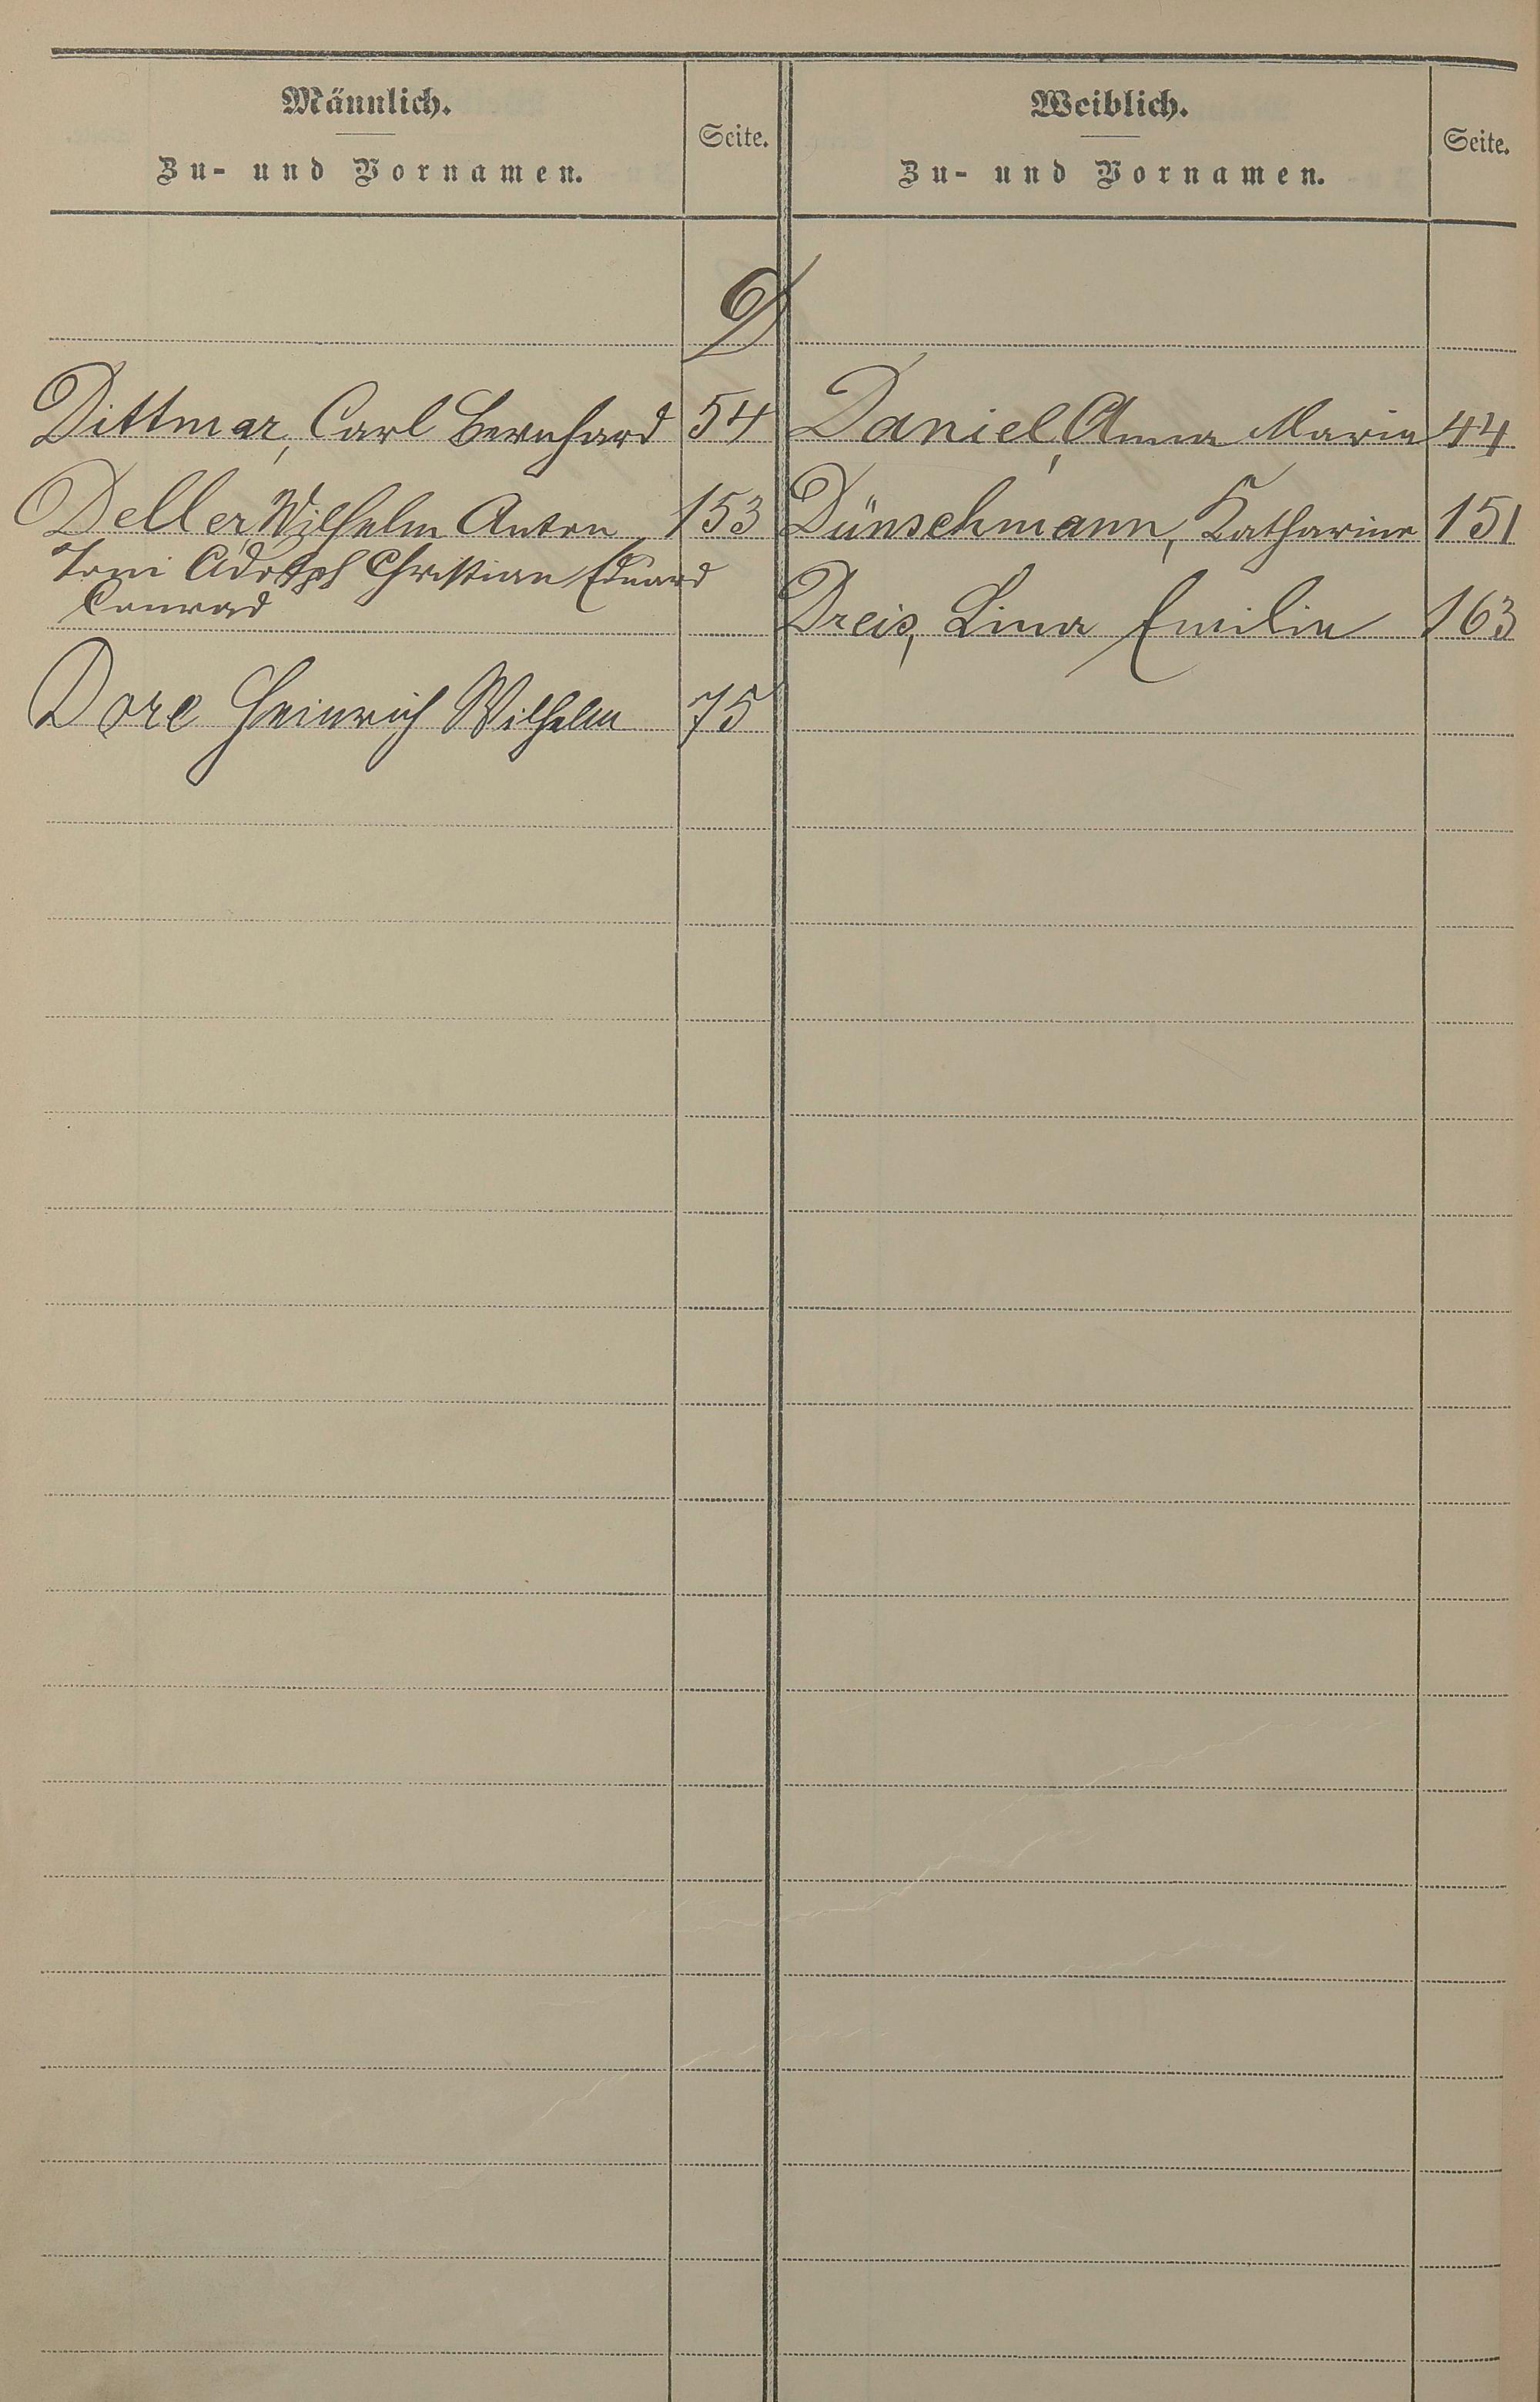 Männlich.
Zu- und Vornamen.
Seite.
Weiblich.
Zu- und Vornamen.
Seite.
D
Dittmar, Carl Bernhard 54
Daniel, Anna Maria 44
Deller, Wilhelm Anton 153
Toni Adolph Christian Eduard
Conrad
Dünschmann, Katharina 151
Dreis, Lina Emilie 163
Dore Heinrich Wilhelm 75